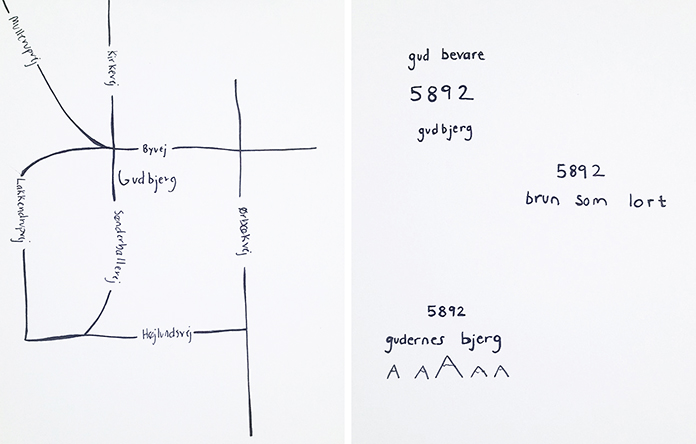 Mullerupvej
Kirkevej
Byvej
Gudbjerg
Lakkendrupvej
Sønderhallevej
Ørbækvej
Højlundsvej
gud bevare
5892
gudbjerg
5892
brun som lort
5892
gudernes bjerg
A A A A A